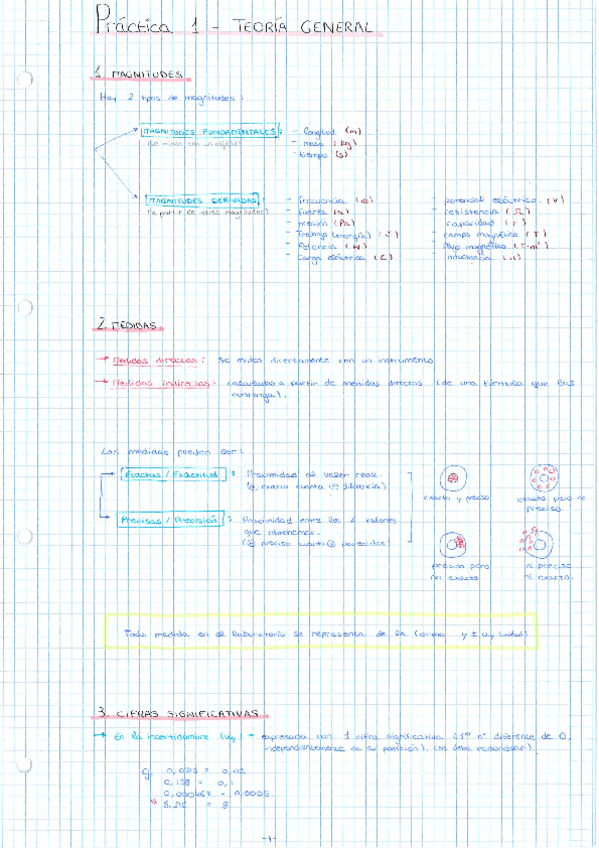 Práctica 1 - TEORÍA GENERAL
1. MAGNITUDES
Hay 2 tipos de magnitudes:
MAGNITUDES FUNDAMENTALES: - longitud (m)
- masa (kg)
- tiempo (s)
MAGNITUDES DERIVADAS: - frecuencia
(a partir de otras magnitudes) - fuerza (N)
- presión (Pa)
- Trabajo (energía) (J)
- Potencia (W)
- Carga eléctrica (C)
- potencial eléctrico (V)
- resistencia (Ω)
- capacidad (F)
- campo magnético (T)
- flujo magnético (T·m²)
- inductancia (H)
2. MEDIDAS
→ Medidas directas: se miden directamente con un instrumento
→ Medidas indirectas: calculadas a partir de medidas directas (de una fórmula que las
contenga).
Las medidas pueden ser:
Exactas / Exactitud: Proximidad al valor real.
(⊕ exacta cuanta ⊖ diferencia)
Precisas / Precisión: Proximidad entre los valores
que obtenemos.
(⊕ precisa cuanto ⊕ parecidos)
exacto y preciso
exacto pero no
preciso
preciso pero
no exacto
ni preciso
ni exacto.
Toda medida en el laboratorio se representa de la forma y ± uy unidad
3. CIFRAS SIGNIFICATIVAS
→ En la incertidumbre (uy) - expresarla con 1 cifra significativa (1er nº diferente de 0,
independientemente de su posición). (se debe redondear).
0,0213 = 0,02
0,138 = 0,1
= 0,0005
8,216 = 8
-1-